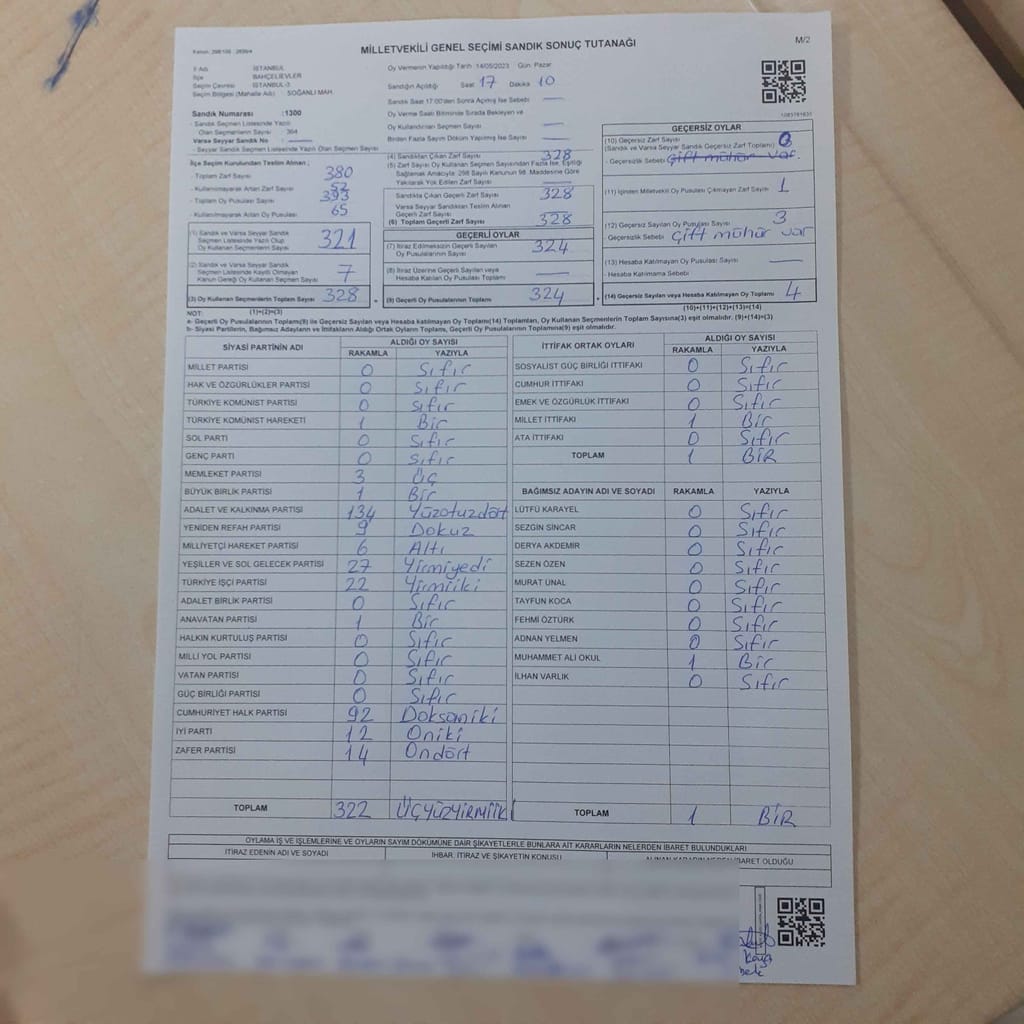 Kanun: 298/105 : 2839/4
MİLLETVEKİLİ GENEL SEÇİMİ SANDIK SONUÇ TUTANAĞI
M/2
İl Adı : İSTANBUL
İlçe : BAHÇELİEVLER
Seçim Çevresi : İSTANBUL-3
Seçim Bölgesi (Mahalle Adı) : SOĞANLI MAH.
Sandık Numarası :1300
- Sandık Seçmen Listesinde Yazılı
Olan Seçmenlerin Sayısı : 364
Varsa Seyyar Sandık No :
- Seyyar Sandık Seçmen Listesinde Yazılı Olan Seçmen Sayısı
İlçe Seçim Kurulundan Teslim Alınan ;
- Toplam Zarf Sayısı 380
- Kullanılmayarak Artan Zarf Sayısı 52
- Toplam Oy Pusulası Sayısı 393
- Kullanılmayarak Artan Oy Pusulası 65
(1) Sandık ve Varsa Seyyar Sandık
Seçmen Listesinde Yazılı Olup
Oy Kullanan Seçmenlerin Sayısı 321
(2) Sandık ve Varsa Seyyar Sandık
Seçmen Listesinde Kayıtlı Olmayan
Kanun Gereği Oy Kullanan Seçmen Sayısı 7
(3) Oy Kullanan Seçmenlerin Toplam Sayısı 328 =
(1)+(2)=(3)
Oy Vermenin Yapıldığı Tarih :14/05/2023 Gün: Pazar
Sandığın Açıldığı Saat 17 Dakika 10
Sandık Saat 17:00'den Sonra Açılmış İse Sebebi —
Oy Verme Saati Bitiminde Sırada Bekleyen ve
Oy Kullandıran Seçmen Sayısı —
Birden Fazla Sayım Döküm Yapılmış İse Sayısı —
(4) Sandıktan Çıkan Zarf Sayısı 328
(5) Zarf Sayısı Oy Kullanan Seçmen Sayısından Fazla İse, Eşitliği
Sağlamak Amacıyla; 298 Sayılı Kanunun 98. Maddesine Göre
Yakılarak Yok Edilen Zarf Sayısı —
Sandıkta Çıkan Geçerli Zarf Sayısı 328
Varsa Seyyar Sandıktan Teslim Alınan
Geçerli Zarf Sayısı
(6) Toplam Geçerli Zarf Sayısı 328
GEÇERLİ OYLAR
(7) İtiraz Edilmeksizin Geçerli Sayılan
Oy Pusulalarının Sayısı 324
(8) İtiraz Üzerine Geçerli Sayılan veya
Hesaba Katılan Oy Pusulası Toplamı —
(9) Geçerli Oy Pusulalarının Toplamı 324 +
1083781631
GEÇERSİZ OYLAR
(10) Geçersiz Zarf Sayısı
(Sandık ve Varsa Seyyar Sandık Geçersiz Zarf Toplamı) 0
- Geçersizlik Sebebi Çift mühür var.
(11) İçinden Milletvekili Oy Pusulası Çıkmayan Zarf Sayısı 1
(12) Geçersiz Sayılan Oy Pusulası Sayısı 3
Geçersizlik Sebebi Çift mühür var
(13) Hesaba Katılmayan Oy Pusulası Sayısı —
- Hesaba Katılmama Sebebi
(14) Geçersiz Sayılan veya Hesaba Katılmayan Oy Toplamı 4
(10)+(11)+(12)+(13)=(14)
NOT:
a- Geçerli Oy Pusulalarının Toplamı(9) ile Geçersiz Sayılan veya Hesaba katılmayan Oy Toplamı(14) Toplamları, Oy Kullanan Seçmenlerin Toplam Sayısına(3) eşit olmalıdır. (9)+(14)=(3)
b- Siyasi Partilerin, Bağımsız Adayların ve İttifakların Aldığı Ortak Oyların Toplamı, Geçerli Oy Pusulalarının Toplamına(9) eşit olmalıdır.
SİYASİ PARTİNİN ADI ALDIĞI OY SAYISI
RAKAMLA YAZIYLA
MİLLET PARTİSİ 0 Sıfır
HAK VE ÖZGÜRLÜKLER PARTİSİ 0 Sıfır
TÜRKİYE KOMÜNİST PARTİSİ 0 Sıfır
TÜRKİYE KOMÜNİST HAREKETİ 1 Bir
SOL PARTİ 0 Sıfır
GENÇ PARTİ 0 Sıfır
MEMLEKET PARTİSİ 3 Üç
BÜYÜK BİRLİK PARTİSİ 1 Bir
ADALET VE KALKINMA PARTİSİ 134 Yüzotuzdört
YENİDEN REFAH PARTİSİ 9 Dokuz
MİLLİYETÇİ HAREKET PARTİSİ 6 Altı
YEŞİLLER VE SOL GELECEK PARTİSİ 27 Yirmiyedi
TÜRKİYE İŞÇİ PARTİSİ 22 Yirmiiki
ADALET BİRLİK PARTİSİ 0 Sıfır
ANAVATAN PARTİSİ 1 Bir
HALKIN KURTULUŞ PARTİSİ 0 Sıfır
MİLLİ YOL PARTİSİ 0 Sıfır
VATAN PARTİSİ 0 Sıfır
GÜÇ BİRLİĞİ PARTİSİ 0 Sıfır
CUMHURİYET HALK PARTİSİ 92 Doksaniki
İYİ PARTİ 12 Oniki
ZAFER PARTİSİ 14 Ondört
TOPLAM 322 ÜÇYÜZYİRMİİKİ
İTTİFAK ORTAK OYLARI ALDIĞI OY SAYISI
RAKAMLA YAZIYLA
SOSYALİST GÜÇ BİRLİĞİ İTTİFAKI 0 Sıfır
CUMHUR İTTİFAKI 0 Sıfır
EMEK VE ÖZGÜRLÜK İTTİFAKI 0 Sıfır
MİLLET İTTİFAKI 1 Bir
ATA İTTİFAKI 0 Sıfır
TOPLAM 1 BİR
BAĞIMSIZ ADAYIN ADI VE SOYADI RAKAMLA YAZIYLA
LÜTFÜ KARAYEL 0 Sıfır
SEZGİN SİNCAR 0 Sıfır
DERYA AKDEMİR 0 Sıfır
SEZEN ÖZEN 0 Sıfır
MURAT ÜNAL 0 Sıfır
TAYFUN KOCA 0 Sıfır
FEHMİ ÖZTÜRK 0 Sıfır
ADNAN YELMEN 0 Sıfır
MUHAMMET ALİ OKUL 1 Bir
İLHAN VARLIK 0 Sıfır
TOPLAM 1 BİR
OYLAMA İŞ VE İŞLEMLERİNE VE OYLARIN SAYIM DÖKÜMÜNE DAİR ŞİKAYETLERLE BUNLARA AİT KARARLARIN NELERDEN İBARET BULUNDUKLARI
İTİRAZ EDENİN ADI VE SOYADI İHBAR, İTİRAZ VE ŞİKAYETİN KONUSU ALINAN KARARIN NEDEN İBARET OLDUĞU